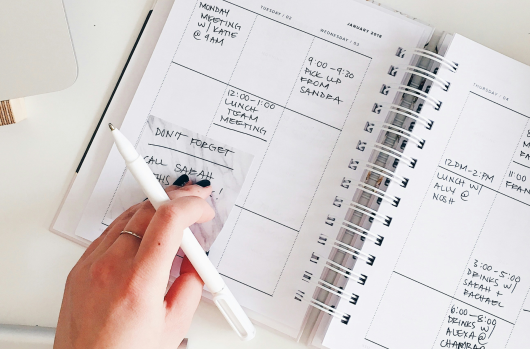 JANUARY 2018
TUESDAY | 02
WEDNESDAY | 03
THURSDAY | 04
MONDAY
MEETING
W/ KATIE
@ 9AM
12:00-1:00
LUNCH
TEAM
MEETING
9:00-9:30
PICK UP
FROM
SANDRA
DON'T FORGET
CALL SARAH
THIS
!
12PM-2:PM
LUNCH W/
ALLY @
NOSH
11:00
3:00-5:00
DRINKS W/
SARAH +
RACHAEL
6:00-8:00
DRINKS W/
ALEXA @